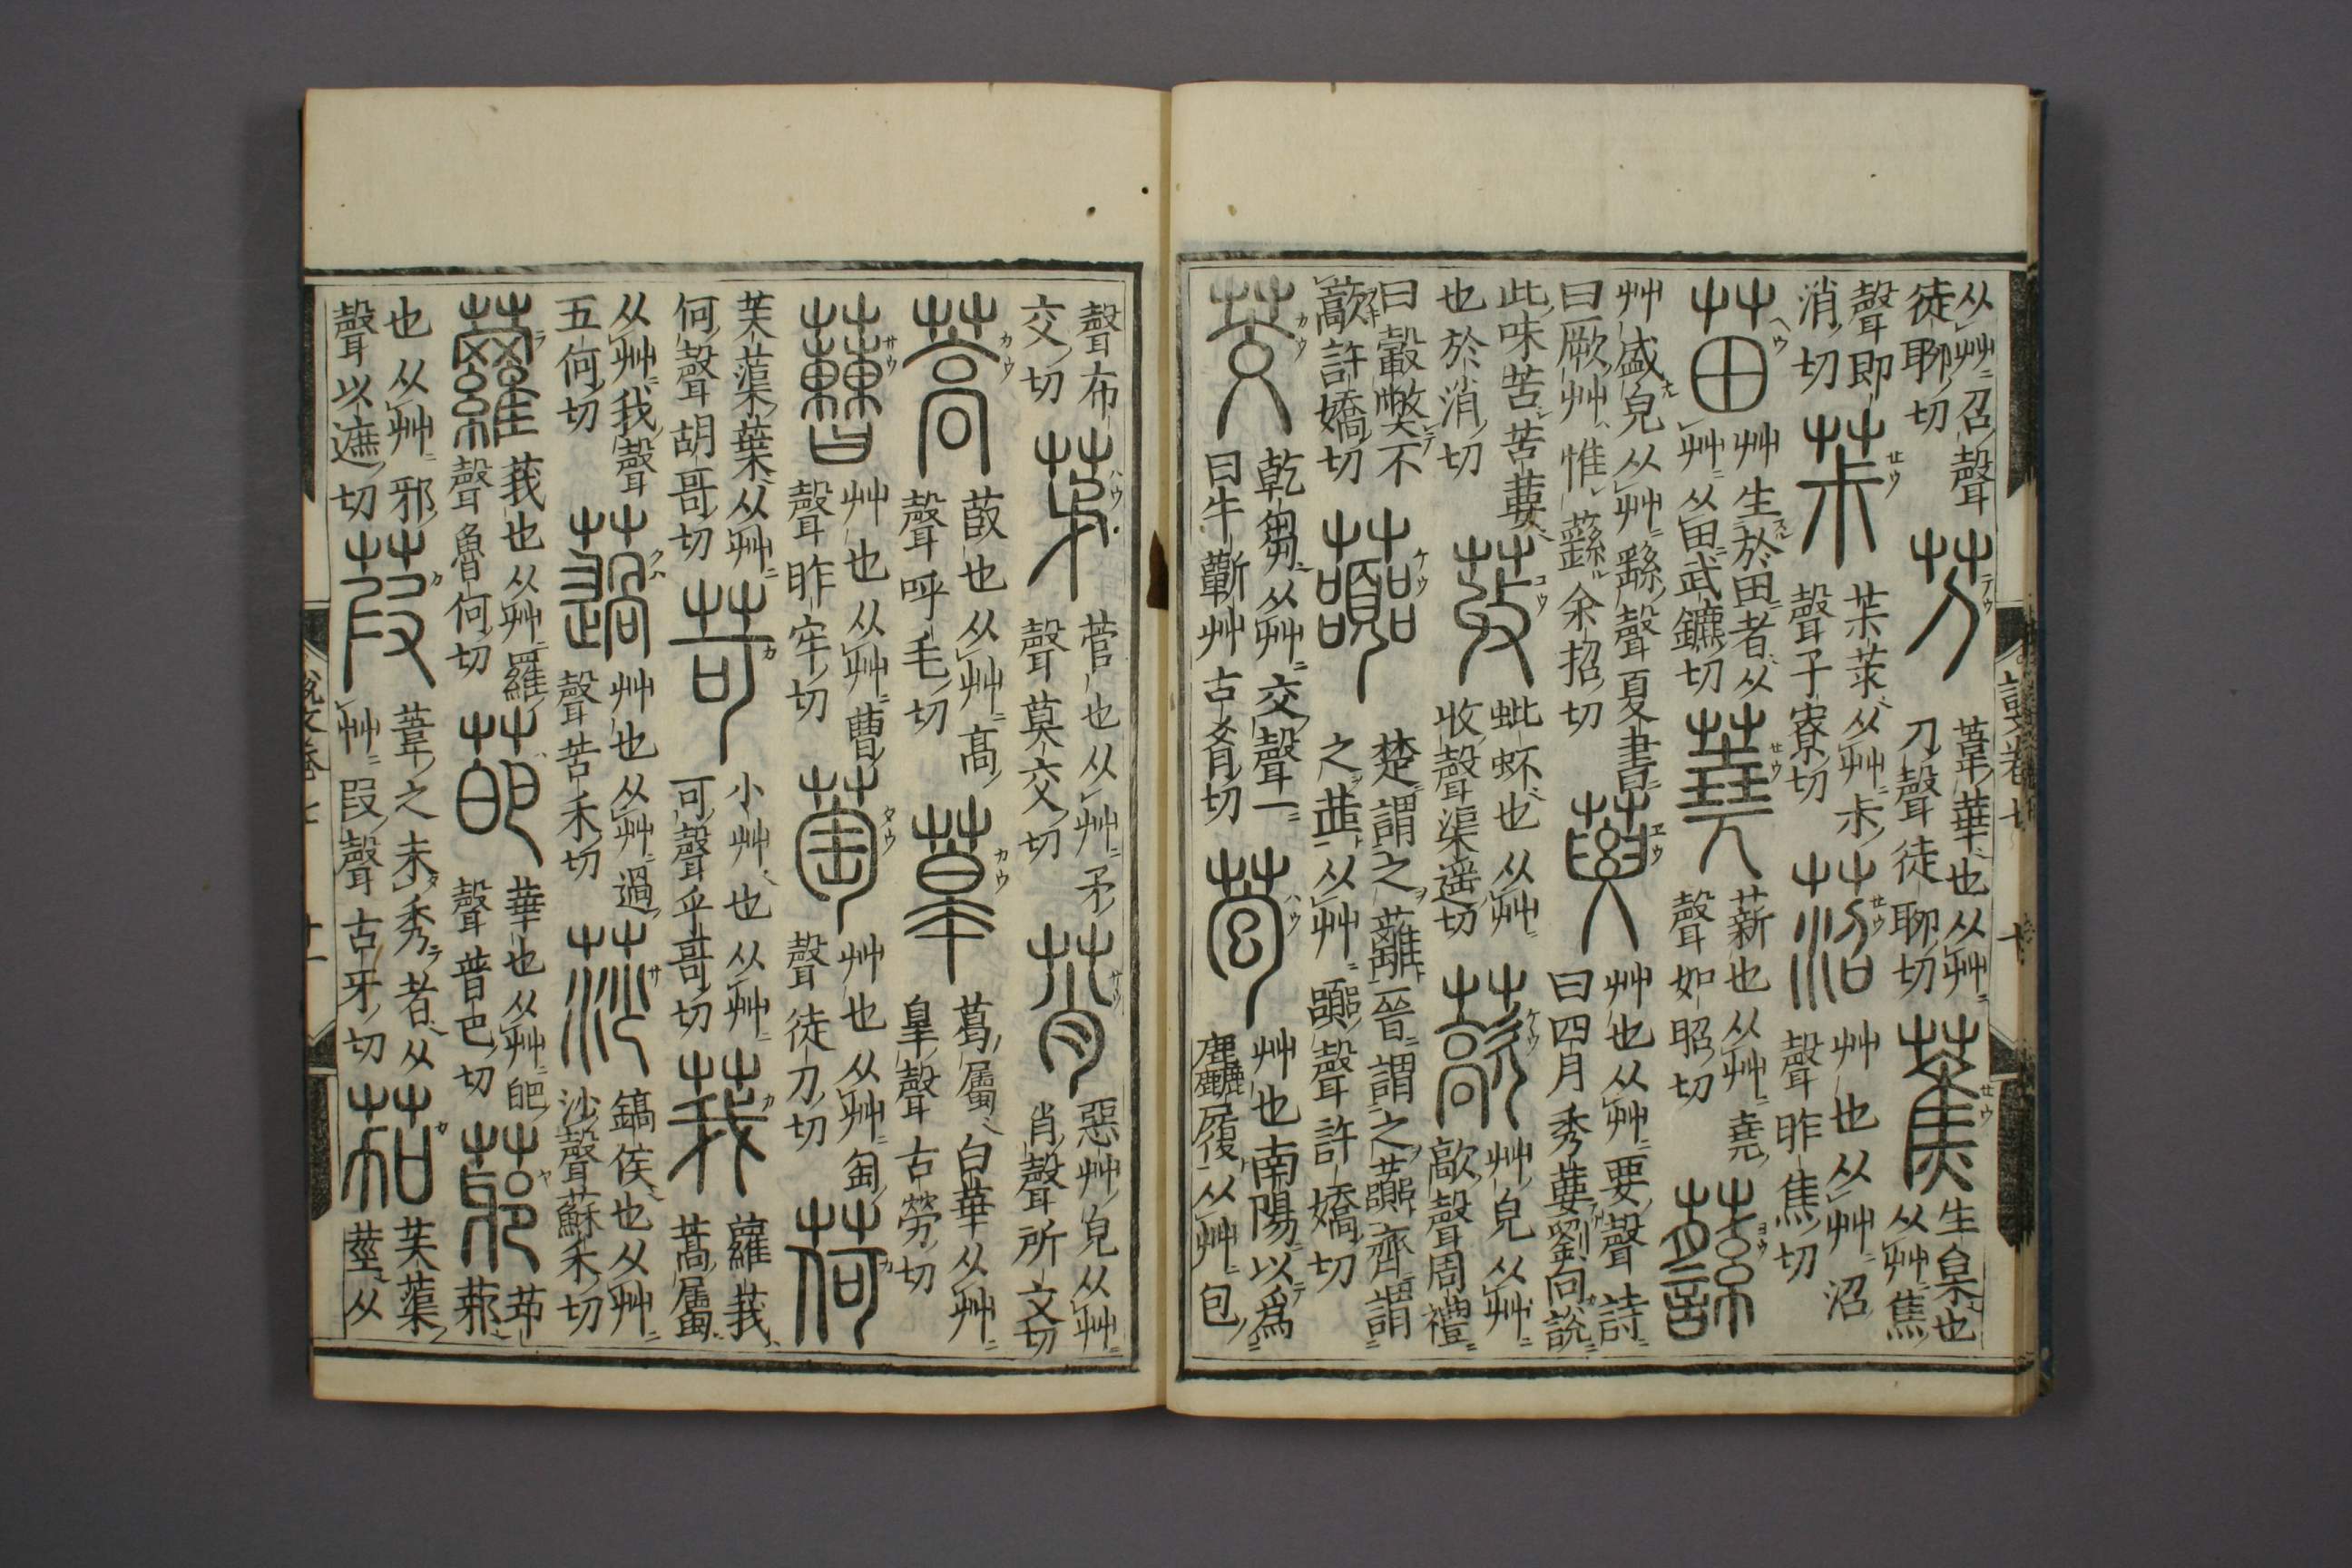 从艸召聲徒聊切芀葦華也从艸刀聲徒聊切蕉生枲也从艸焦
聲即消切茮茮莍从艸尗聲子寮切菬艸也从艸沼聲昨焦切
苗艸生於田者从艸从田武鑣切蕘薪也从艸堯聲如昭切蘨
艸盛皃从艸繇聲夏書曰厥艸惟蘨余招切葽艸也从艸要聲詩曰四月秀葽劉向說
此味苦苦葽也於消切荍蚍也从艸收聲渠遥切藃艸皃从艸歊聲周禮
曰轂獘不藃許嬌切虈楚謂之蘺晉謂之虈齊謂之茝从艸嚻聲許嬌切
茭乾芻从艸交聲一曰牛蘄艸古肴切苞艸也南陽以爲麤履从艸包
聲布交切茅菅也从艸矛聲莫交切莦惡艸皃从艸肖聲所交切
蒿菣也从艸高聲呼毛切葛屬白華从艸皋聲古勞切
蓸艸也从艸曹聲昨牢切萄艸也从艸匋聲徒刀切荷
芙蕖葉从艸何聲胡哥切苛小艸也从艸可聲乎哥切莪蘿莪蒿屬
从艸我聲五何切薖艸也从艸過聲苦禾切莎鎬侯也从艸沙聲蘇禾切
蘿莪也从艸羅聲魯何切葩華也从艸皅聲普巴切
也从艸邪聲以遮切葭葦之未秀者从艸叚聲古牙切茄芙蕖莖从
說文卷七 十一